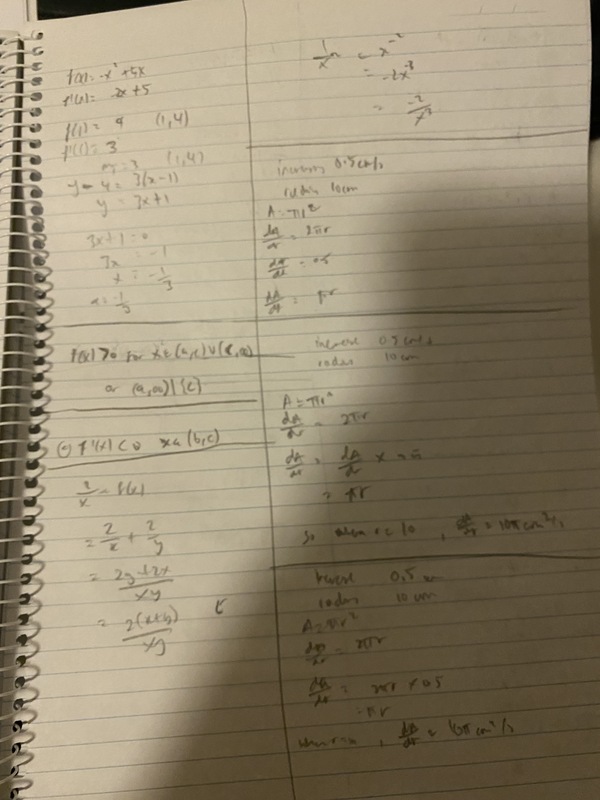 f(x) = -x² + 5x
f'(x) = -2x + 5
f(1) = 4 (1,4)
f'(1) = 3
m = 3 (1,4)
y - 4 = 3(x-1)
y = 3x+1
3x+1 = 0
3x = -1
x = -1/3
a = -1/3
f(x) > 0 for x ∈ (a,c) ∪ (c,∞)
or (a,∞)\{c}
c) f'(x) < 0 x ∈ (b,c)
2/x = f(x)
= 2/x + 2/y
= 2y+2x/xy
= 2(x+y)/xy
1/x² = x⁻²
= -2x⁻³
= -2/x³
increases 0.5 cm/s
radius 10cm
A = πr²
dA/dr = 2πr
dr/dt = 0.5
dA/dt = πr
increase 0.5 cm/s
radius 10 cm
A = πr²
dA/dr = 2πr
dA/dt = dA/dr ×
= πr
so when r = 10, dA/dt = 10π cm²/s
increase 0.5
radius 10 cm
A = πr²
dA/dr = 2πr
dA/dt = 2πr × 0.5
= πr
when , dA/dt = 10π cm²/s